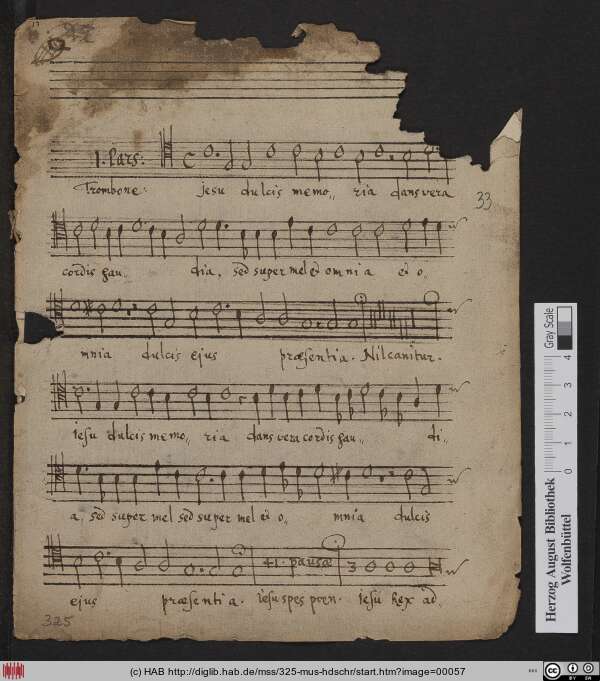 I. Pars:
Trombone: jesu dulcis memo,, ria dans vera
33
cordis gau,, dia, sed super mel et omnia et o,
mnia dulcis ejus præsentia. Nil canitur.
iesu dulcis memo,, ria dans vera cordis gau,, di,
a, sed super mel sed super mel et o,, mnia dulcis
41. pausæ 3
ejus præsentia. iesu spes poen. iesu Rex ad.
325
Gray Scale
0 1 2 3 4
Herzog August Bibliothek
Wolfenbüttel
(c) HAB http://diglib.hab.de/mss/325-mus-hdschr/start.htm?image=00057
cc BY SA